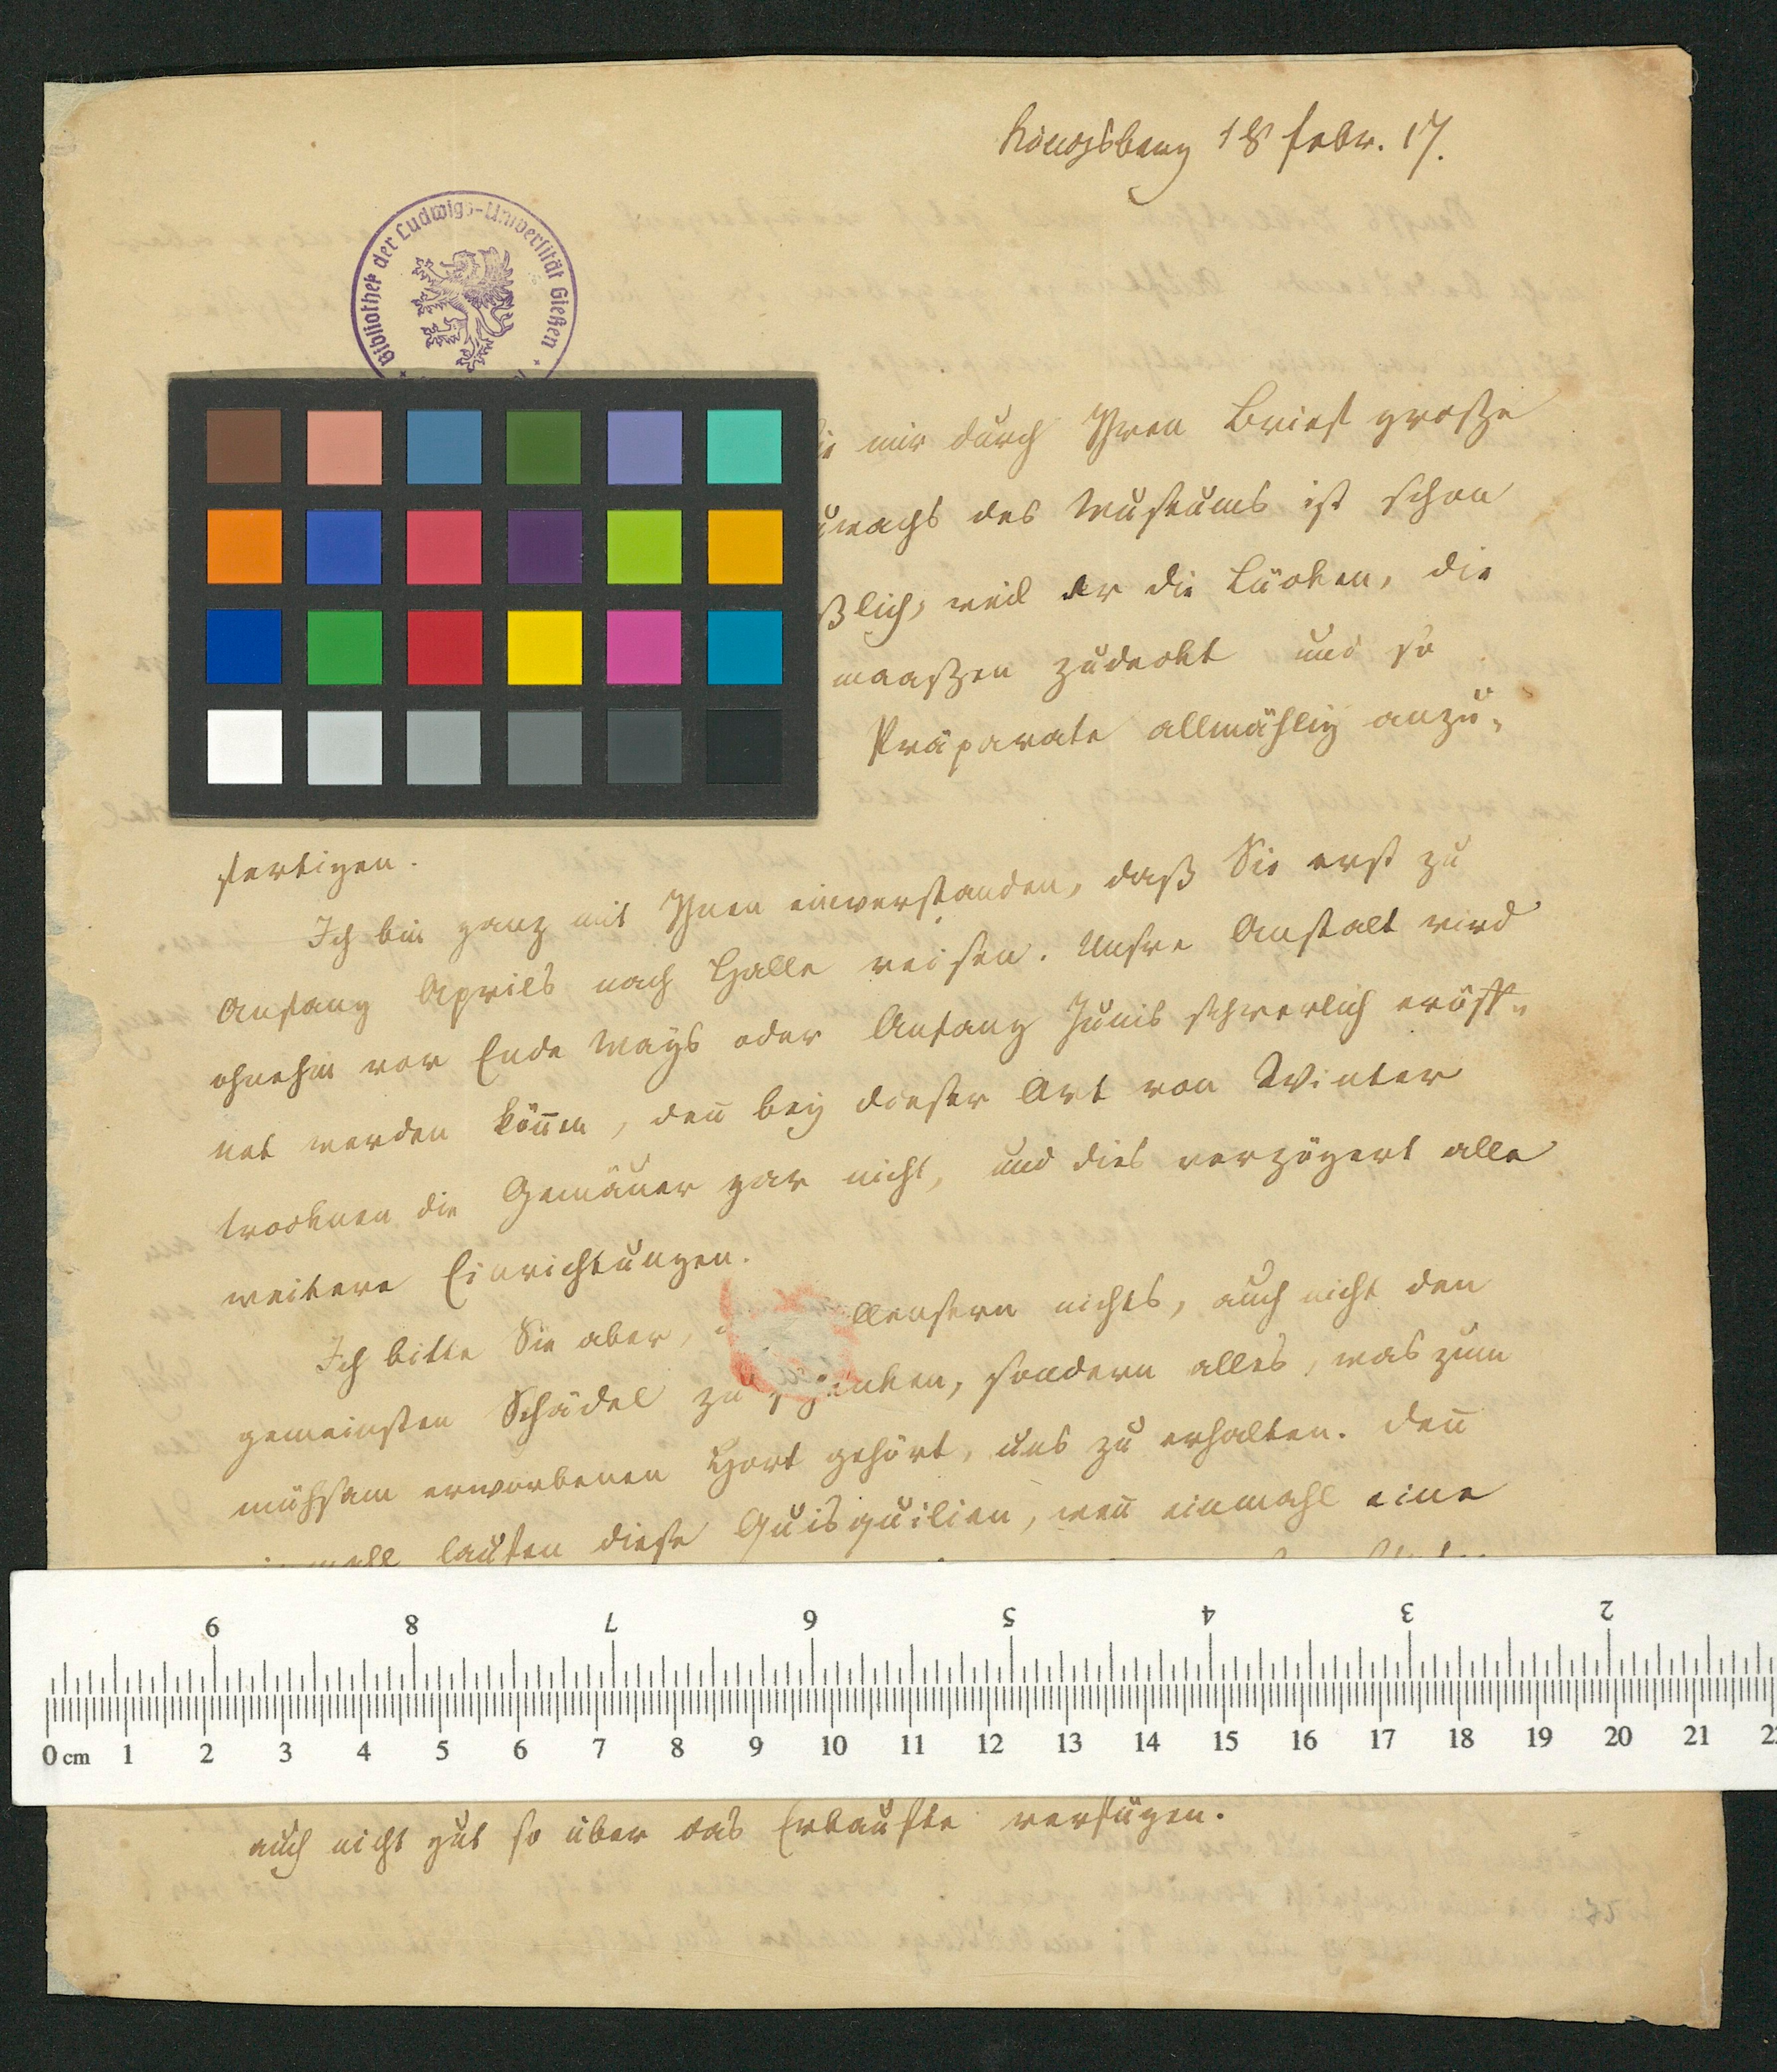 Königsberg 18 Febr. 17.
Bibliothek der Ludwigs-Universität Gießen
mir durch Ihren Brief große
des Museums ist schon
weil er die Lücken, die
maaßen zudeckt und so
Präparate allmählig anzu-
fertigen.
Ich bin ganz mit Ihnen einverstanden, daß Sie erst zu
Anfang Aprils nach Halle reisen. Unsre Anstalt wird
ohnehin vor Ende Mays oder Anfang Junis schwerlich eröff-
net werden können, den̄ bey dieser Art von Winter
trocknen die Gemäuer gar nicht, und dies verzögert alle
weitere Einrichtungen.
Ich bitte Sie aber, Aeussern nichts, auch nicht den
gemeinsten Schädel zu schenken, sondern alles, was zum
mühsam erworbenen Hort gehört, uns zu erhalten. Den̄
laufen diese Quisquilien, wen̄ einmahl eine
9 8 7 6 5 4 3 2
0 cm 1 2 3 4 5 6 7 8 9 10 11 12 13 14 15 16 17 18 19 20 21
auch nicht gut so über das Erkaufte verfügen.